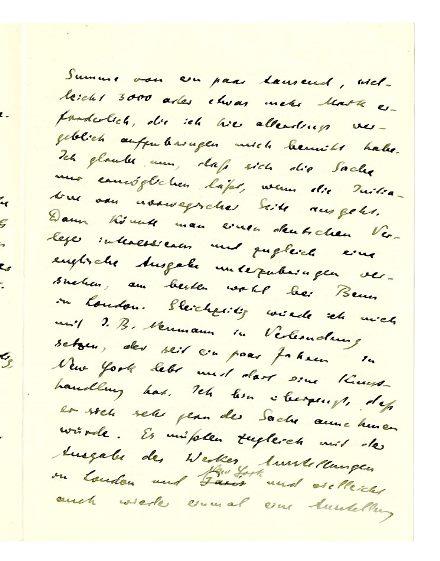 Summe von ein paar tausend, viel-
leicht 3000 oder etwas mehr Mark er-
forderlich, die ich hier allerdings ver-
geblich aufzubringen mich bemüht habe.
Ich glaube nun, daß sich die Sache
nur ermöglichen läßt, wenn die Initia-
tive von norwegischer Seite ausgeht.
Dann könnte man einen deutschen Ver-
leger interessieren und zugleich eine
englische Ausgabe unterzubringen ver-
suchen, am besten wohl bei Benn
in London. Gleichzeitig würde ich mich
mit J. B. Neumann in Verbindung
setzen, der seit ein paar Jahren in
New York lebt und dort eine Kunst-
handlung hat. Ich bin überzeugt, daß
er sich sehr gern der Sache annehmen
würde. Es müßten zugleich mit der
Ausgabe des Werkes Ausstellungen
in London und New York und vielleicht
auch wieder einmal eine Ausstellung